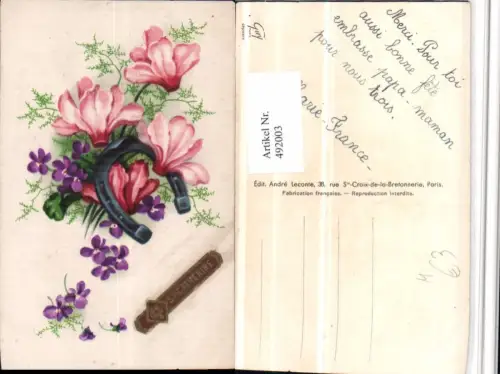 Merci. Pour toi
aussi bonne fête
embrasse papa-maman
pour nous trois.
Marie-France-
Artikel Nr.
492003
Édit. André Leconte, 38, rue Ste-Croix-de-la-Bretonnerie, Paris.
Fabrication française. — Reproduction interdite.